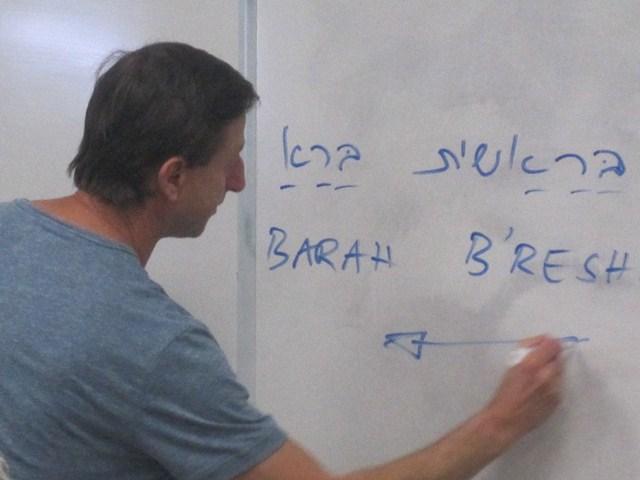 בראשית ברא
BARAH B'RESH